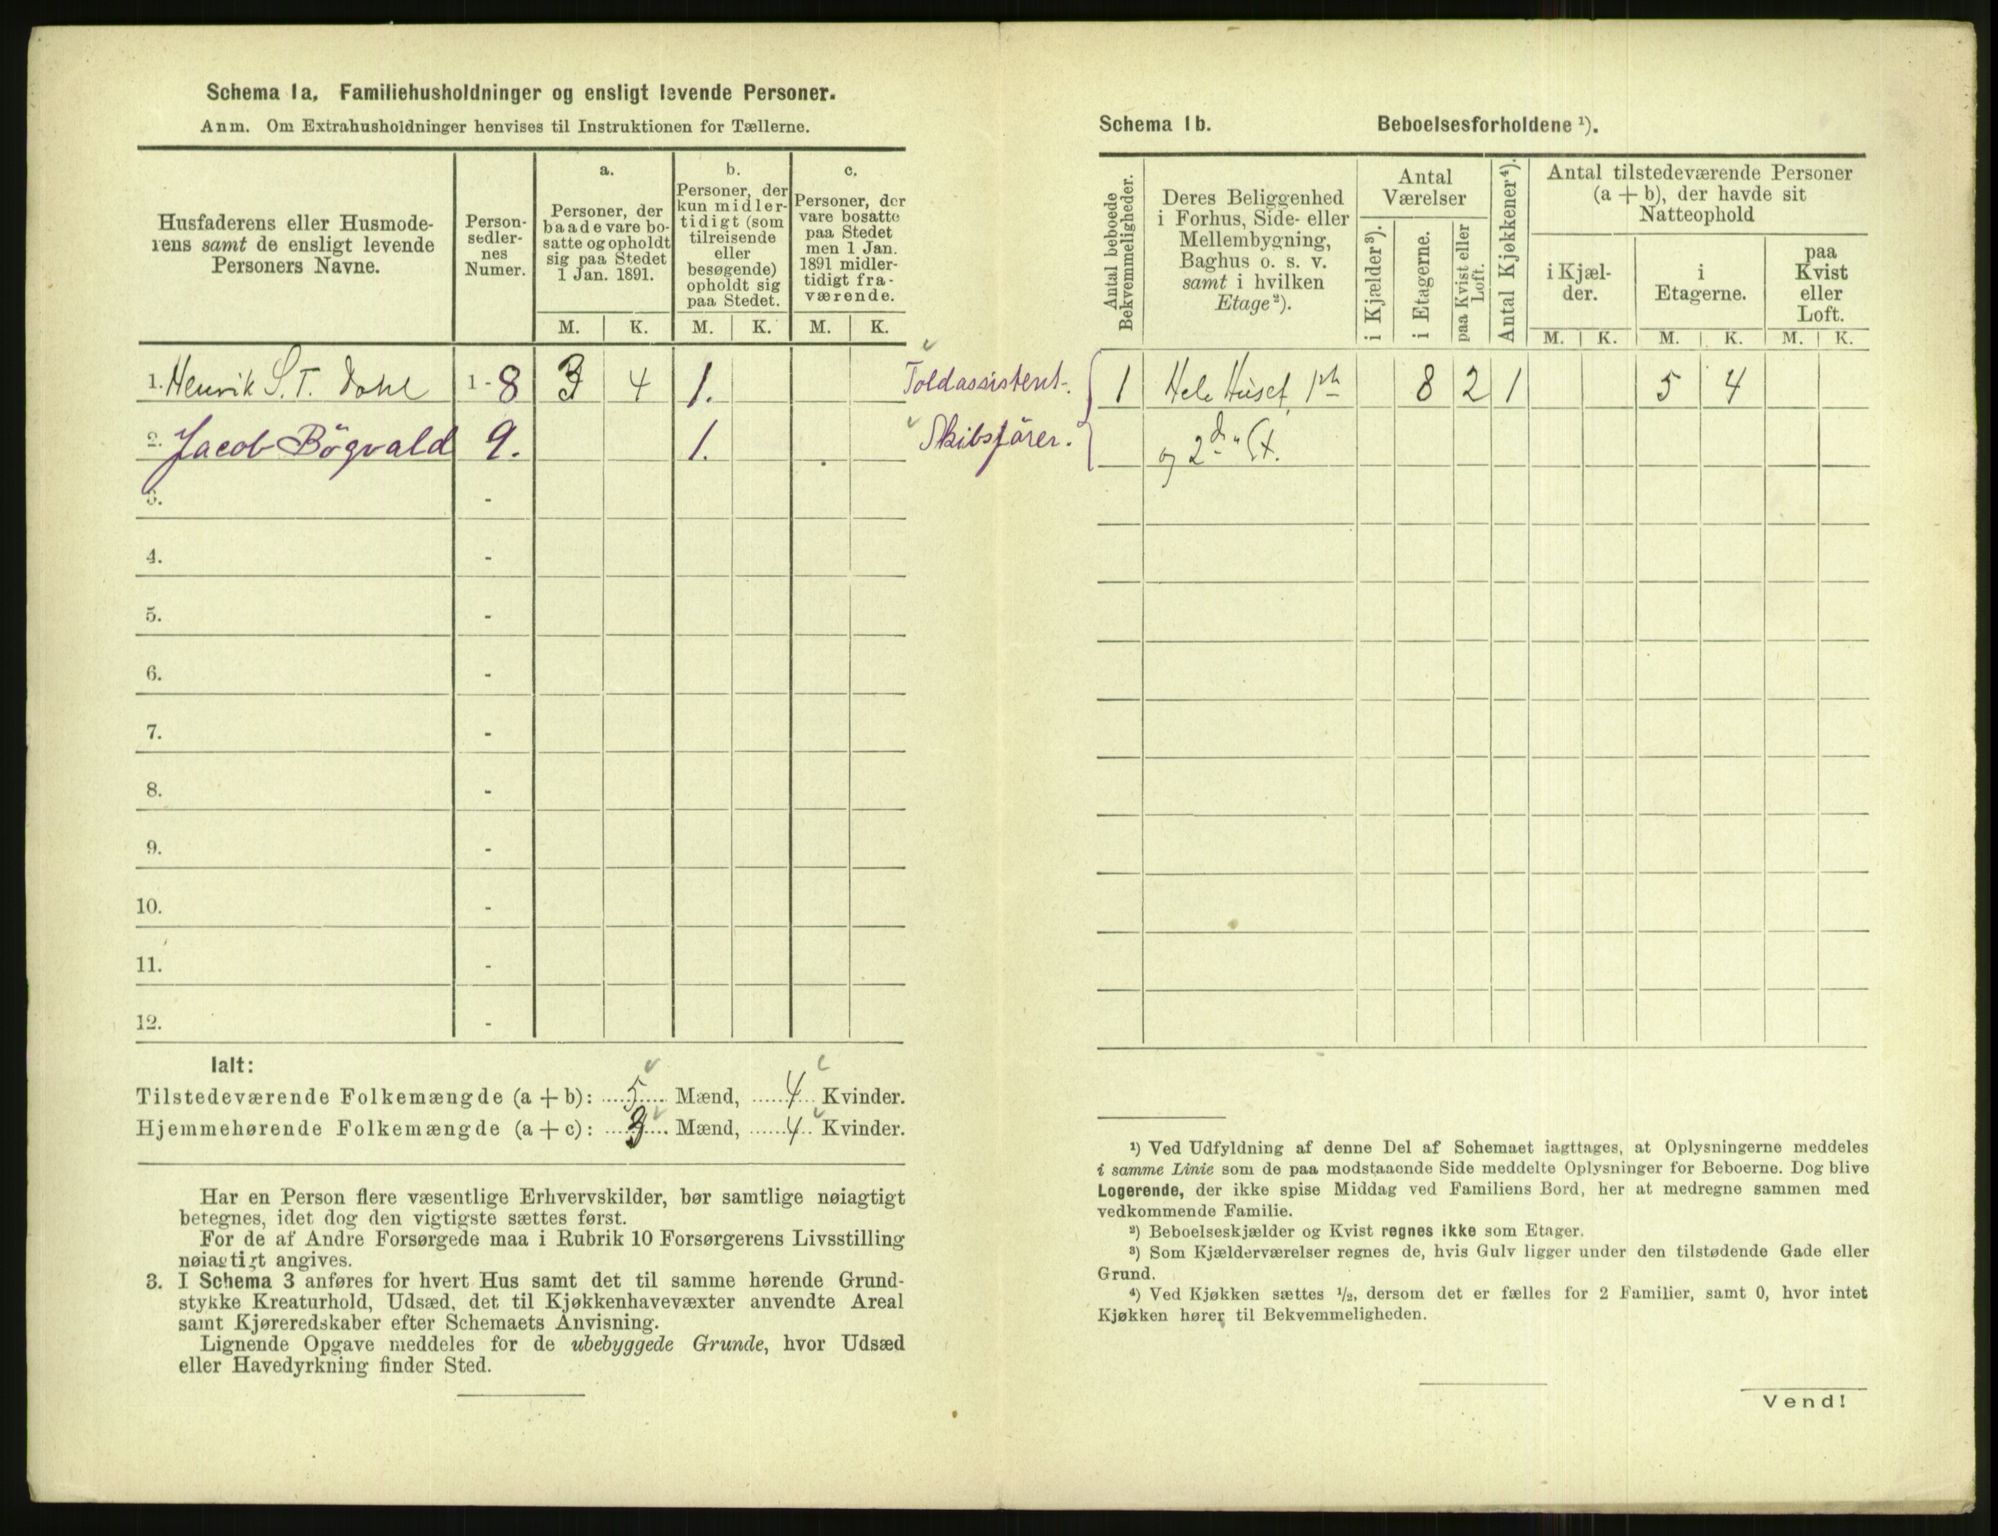 Schema 1a. Familiehusholdninger og ensligt levende Personer.
Anm. Om Extrahusholdninger henvises til Instruktionen for Tællerne.
Husfaderens eller Husmode-
rens samt de ensligt levende
Personers Navne.
Person-
sedler-
nes
Numer.
a.
Personer, der
baade vare bo-
satte og opholdt
sig paa Stedet
1 Jan. 1891.
b.
Personer, der
kun midler-
tidigt (som
tilreisende
eller
besøgende)
opholdt sig
paa Stedet.
c.
Personer, der
vare bosatte
paa Stedet
men 1 Jan.
1891 midler-
tidigt fra-
værende.
M. K. M. K. M. K.
1. Henrik S. T. Dahl 1 - 8 3 4 1. Toldassistent.
2. Jacob Bögvald 9. 1. Skibsförer.
3. -
4. -
5. -
6. -
7. -
8. -
9. -
10. -
11. -
12. -
Ialt:
Tilstedeværende Folkemængde (a + b): 5 Mænd, 4 Kvinder.
Hjemmehørende Folkemængde (a + c): 3 Mænd, 4 Kvinder.
Har en Person flere væsentlige Erhvervskilder, bør samtlige nøiagtigt
betegnes, idet dog den vigtigste sættes først.
For de af Andre Forsørgede maa i Rubrik 10 Forsørgerens Livsstilling
nøiagtigt angives.
3. I Schema 3 anføres for hvert Hus samt det til samme hørende Grund-
stykke Kreaturhold, Udsæd, det til Kjøkkenhavevæxter anvendte Areal
samt Kjøreredskaber efter Schemaets Anvisning.
Lignende Opgave meddeles for de ubebyggede Grunde, hvor Udsæd
eller Havedyrkning finder Sted.
Schema 1b. Beboelsesforholdene ¹).
Antal beboede
Bekvemmeligheder.
Deres Beliggenhed
i Forhus, Side- eller
Mellembygning,
Baghus o. s. v.
samt i hvilken
Etage²).
Antal
Værelser
i Kjælder³).
i Etagerne.
paa Kvist eller
Loft.
Antal Kjøkkener⁴).
Antal tilstedeværende Personer
(a + b), der havde sit
Natteophold
i Kjæl-
der.
i
Etagerne.
paa
Kvist
eller
Loft.
M. K. M. K. M. K.
1 Hele Huset, 1ste 8 2 1 5 4
og 2den Et.
¹) Ved Udfyldning af denne Del af Schemaet iagttages, at Oplysningerne meddeles
i samme Linie som de paa modstaaende Side meddelte Oplysninger for Beboerne. Dog blive
Logerende, der ikke spise Middag ved Familiens Bord, her at medregne sammen med
vedkommende Familie.
²) Beboelseskjælder og Kvist regnes ikke som Etager.
³) Som Kjælderværelser regnes de, hvis Gulv ligger under den tilstødende Gade eller
Grund.
⁴) Ved Kjøkken sættes ½, dersom det er fælles for 2 Familier, samt 0, hvor intet
Kjøkken hører til Bekvemmeligheden.
Vend!